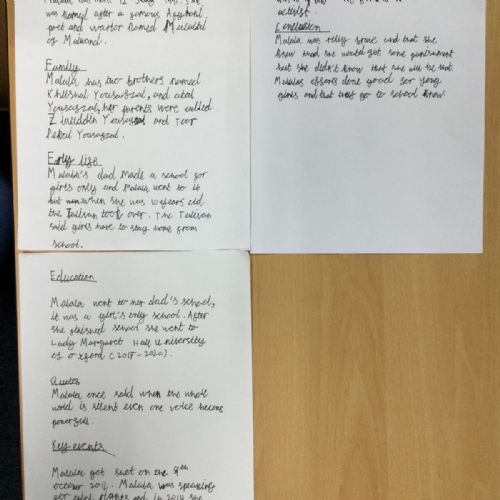 was named after a famous Afghani
poet and warrior named Malalai
of Maiwand.
Family
Malala has two brothers named
Khushal Yousafzai, and atal
Yousafzai, her parents were called
Ziauddin Yousafzai and Toor
Pekai Yousafzai.
Early life
Malala's dad made a school for
girls only and Malala went to it
but when she was 10 years old
the Taliban took over. The Taliban
said girls have to stay home from
school.
Education
Malala went to her dad's school,
it was a girl's only school. After
she finished school she went to
Lady Margaret Hall University
of oxford (2017-2020).
Quotes
Malala once said when the whole
world is silent even one voice becoms
powerfull.
Key events
Malala got shot on the 9th
october 2012. Malala was speaking
for girls rights and in 2014 she
activist.
Conclusion
Malala was relly brave and that she
knew that she would get some punishment
but she didn't know that she will be shot.
Malalas efforts done good for young
girls and that they go to school know.